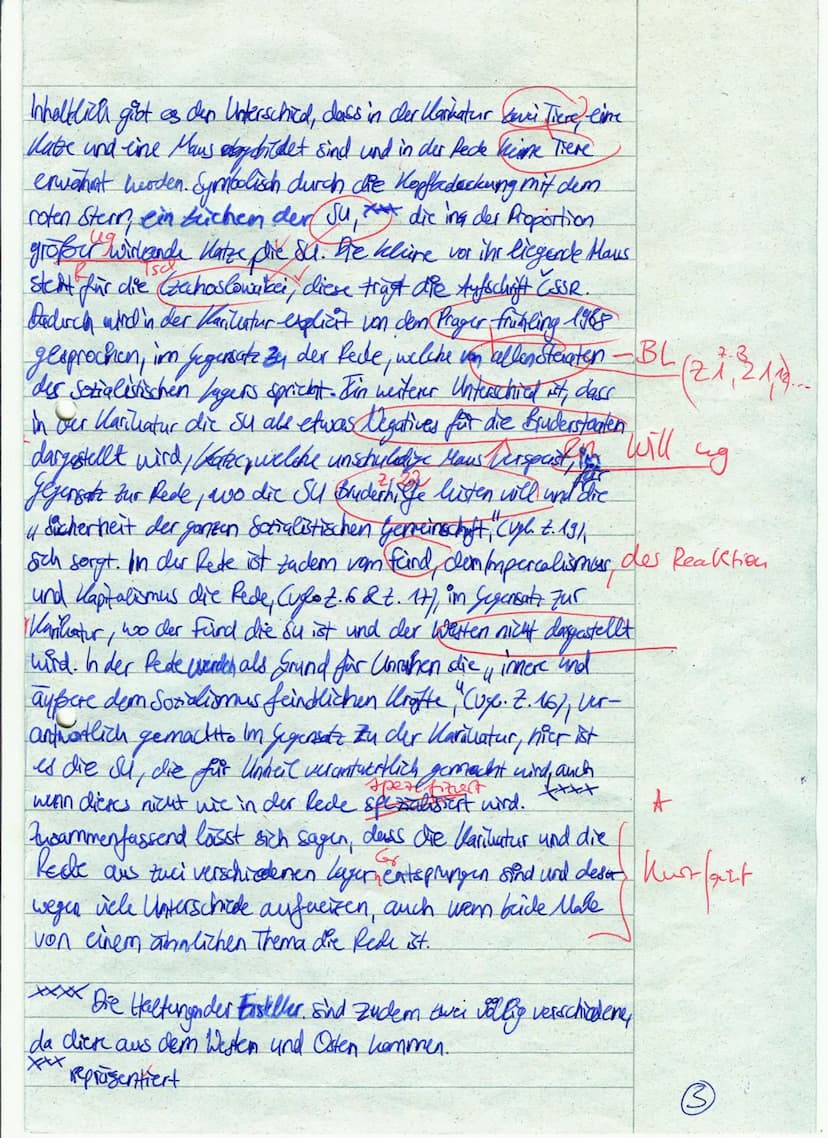 Inhaltlich gibt es den Unterschied, dass in der Karikatur zwei Tiere, eine
Katze und eine Maus abgebildet sind und in der Rede keine Tiere
erwähnt werden. Symbolisch durch die Kopfbedeckung mit dem
roten Stern, ein Zeichen der SU, xxx die in der Proportion
größer wirkende Katze, die SU. Die kleine vor ihr liegende Maus
ug
R
Tsch
steht für die Czechoslowakei, diese trägt die Aufschrift ČSSR.
Dadurch wird in der Karikatur explizit von dem Prager Frühling 1968
gesprochen, im Gegensatz zu der Rede, welche von allen Staaten – BL
z.B.
(Z 1, Z 1,19...
des Sozialistischen Lagers spricht. Ein weiterer Unterschied ist, dass
in der Karikatur die SU als etwas Negatives für die Bruderstaaten
dargestellt wird, Katze, welche unschuldige Maus verspeist, im
will ug
Gegensatz zur Rede, wo die SU Bruderhilfe leisten will und für die
Z. 22
„Sicherheit der ganzen Sozialistischen Gemeinschaft," (vgl. Z. 19),
sich sorgt. In der Rede ist zudem vom Feind, dem Imperealismus, des Reaktion
und Kapitalismus die Rede, (vgl. Z. 6 & Z. 17), im Gegensatz zur
Karikatur, wo der Feind die SU ist und der Westen nicht dargestellt
wird. In der Rede werden als Grund für Unruhen die „innere und
äußere dem Sozialismus feindlichen Kräfte," (vgl. Z. 16), ver-
antwortlich gemacht. Im Gegensatz zu der Karikatur, hier ist
es die SU, die für Unheil verantwortlich gemacht wird, auch
xxxx
spezifiziert
wenn dieses nicht wie in der Rede spezialisiert wird.
A
Zusammenfassend lässt sich sagen, dass die Karikatur und die
Rede aus zwei verschiedenen Lagern entsprungen sind und des-
Gr
Kurs/gut
wegen viele Unterschiede aufweizen, auch wenn beide Male
von einem ähnlichen Thema die Rede ist.
xxxx Die Haltungen der Ersteller sind zudem zwei völlig verschiedene,
da diese aus dem Westen und Osten kommen.
xxx repräsentiert
3